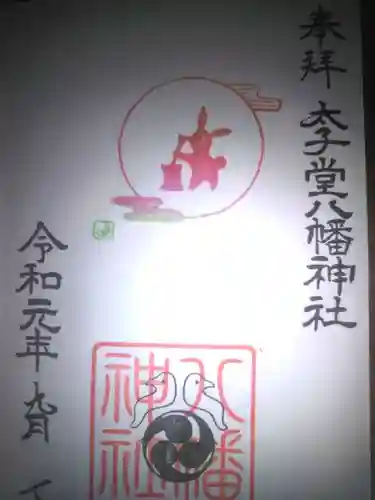 奉拝
太子堂八幡神社
八幡
神社
令和元年九月